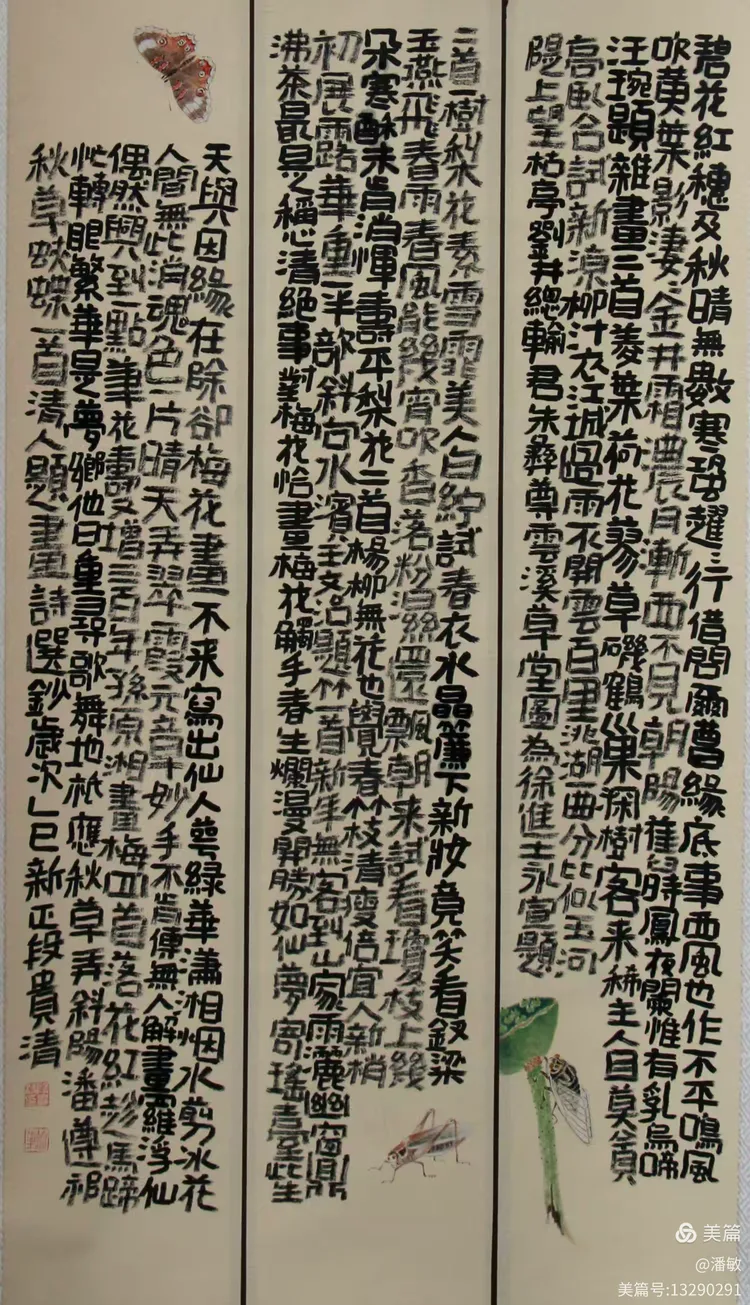 碧花紅穗及秋晴無數寒蛩趯〻行借問爾曹緣底事西風也作不平鳴風
吹黄葉影淒〻金井霜濃月漸西不見朝陽舊時鳳夜闌惟有乳烏啼
汪琬題雜畫二首菱葉荷花蓼草磯鶴巢深樹客來稀主人自莫負
高風合試新涼柳汁衣江城過雨不開雲百里洮湖一曲分比似玉河
隄上望枯亭劉井總輸君朱彝尊雲溪草堂圖為徐進士永宣題
二首一樹梨花素雪霏美人白紵試春衣水晶簾下新妝竟笑看釵梁
玉燕飛春雨春風能幾宵吹香落粉濕還飄朝来試看瓊枝上幾
朵寒酥未肯消惲壽平梨花二首楊柳無花也覺春竹枝清瘦倍宜人新梢
初展雨路華重一半部斜向水濱王文治題竹一首新年無客到山家雨灑幽窗聞
沸茶最是稱心清絕事對梅花恰畫梅花觸手春生爛漫開勝如仙夢寄瑤臺此生
天與因緣在除卻梅花畫不来寫出仙人萼綠華瀟湘烟水剪冰花
人間無此消魂色一片晴天弄翠霞元章妙手不肯傳無人解畫羅浮仙
偶然興到一點筆花壽又增三百年孫原湘畫梅四首落花紅趁馬蹄
忙轉眼繁華是夢鄉他日重尋歌舞地衹應秋草弄斜陽潘遵祁
秋草蛺蝶一首清人題畫詩選鈔歲次乙巳新正段貴清
美篇
@潘敏
美篇号:13290291